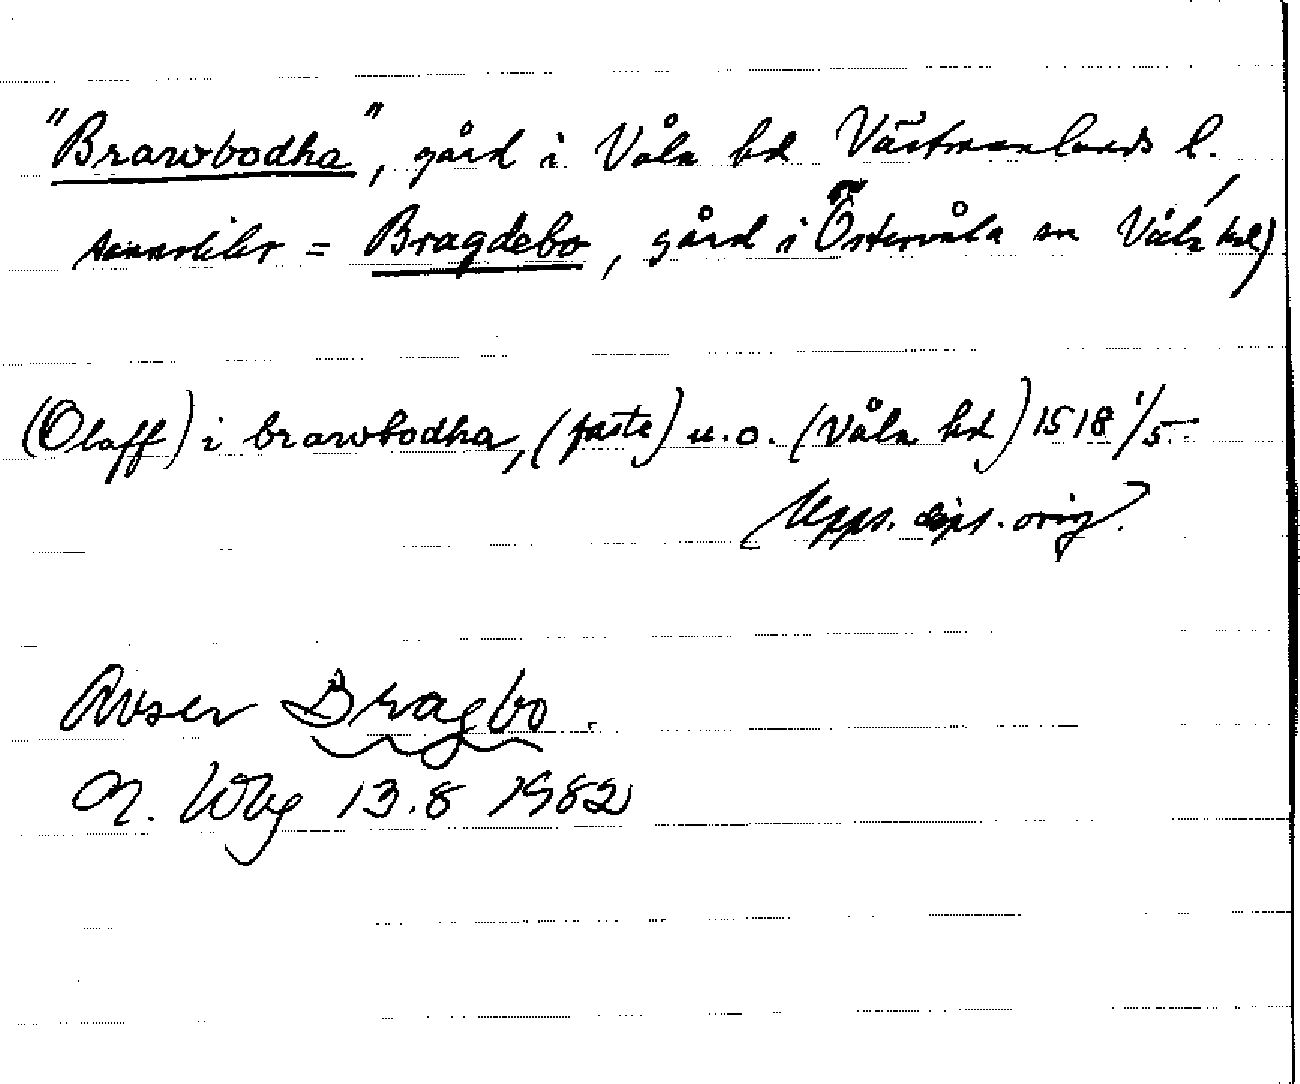 "Brawbodha", gård i Våla hd Västmanlands l.
sannolikt = Bragdebo, gård i Östervåla sn Våla hd)
(Olaff) i brawbodha, (faste) u.o. (Våla hd) 1518 1/5.
Upps. dips. orig.
Avser Bragbo.
13.8 1982